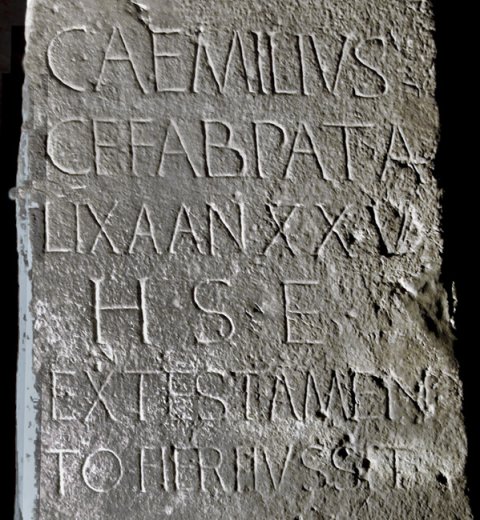 CAEMILIVS
CFFABPATA
LIXAAN XXV
H S E
EXTESTAMEN
TO FIERI IVSSIT